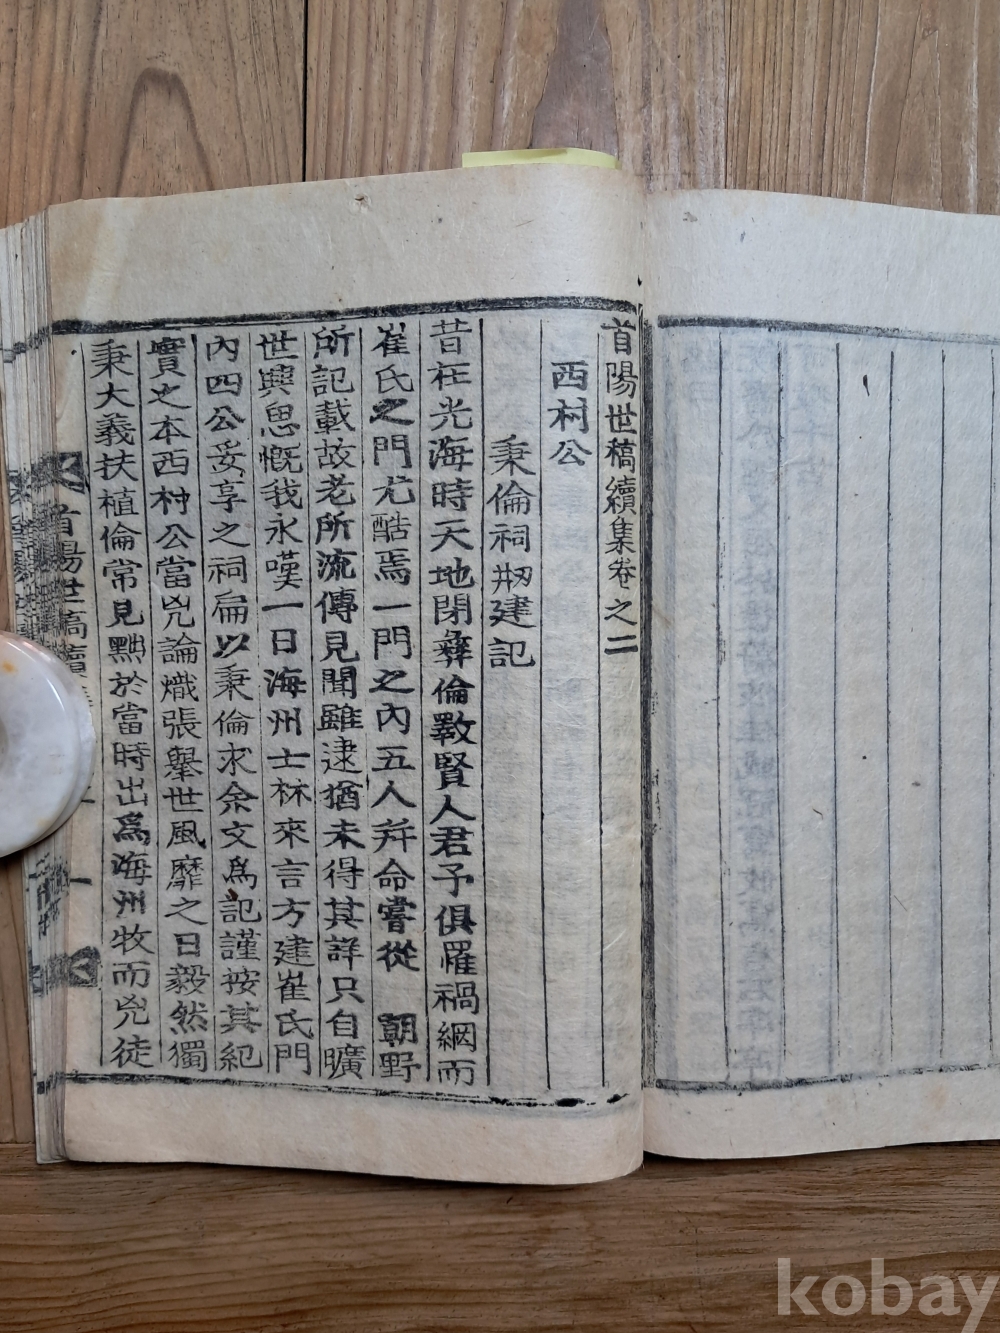 首陽世稿續集卷之二
西村公
秉倫祠刱建記
昔在光海時天地閉彝倫斁賢人君子俱罹禍網而
崔氏之門尤酷焉一門之內五人幷命嘗從 朝野
所記載故老所流傳見聞雖逮猶未得其詳只自曠
世興思慨我永嘆一日海州士林來言方建崔氏門
內四公妥享之祠扁以秉倫求余文爲記謹按其紀
實之本西村公當兇論熾張擧世風靡之日毅然獨
秉大義扶植倫常見黜於當時出爲海州牧而兇徒
首陽世稿續
kobay